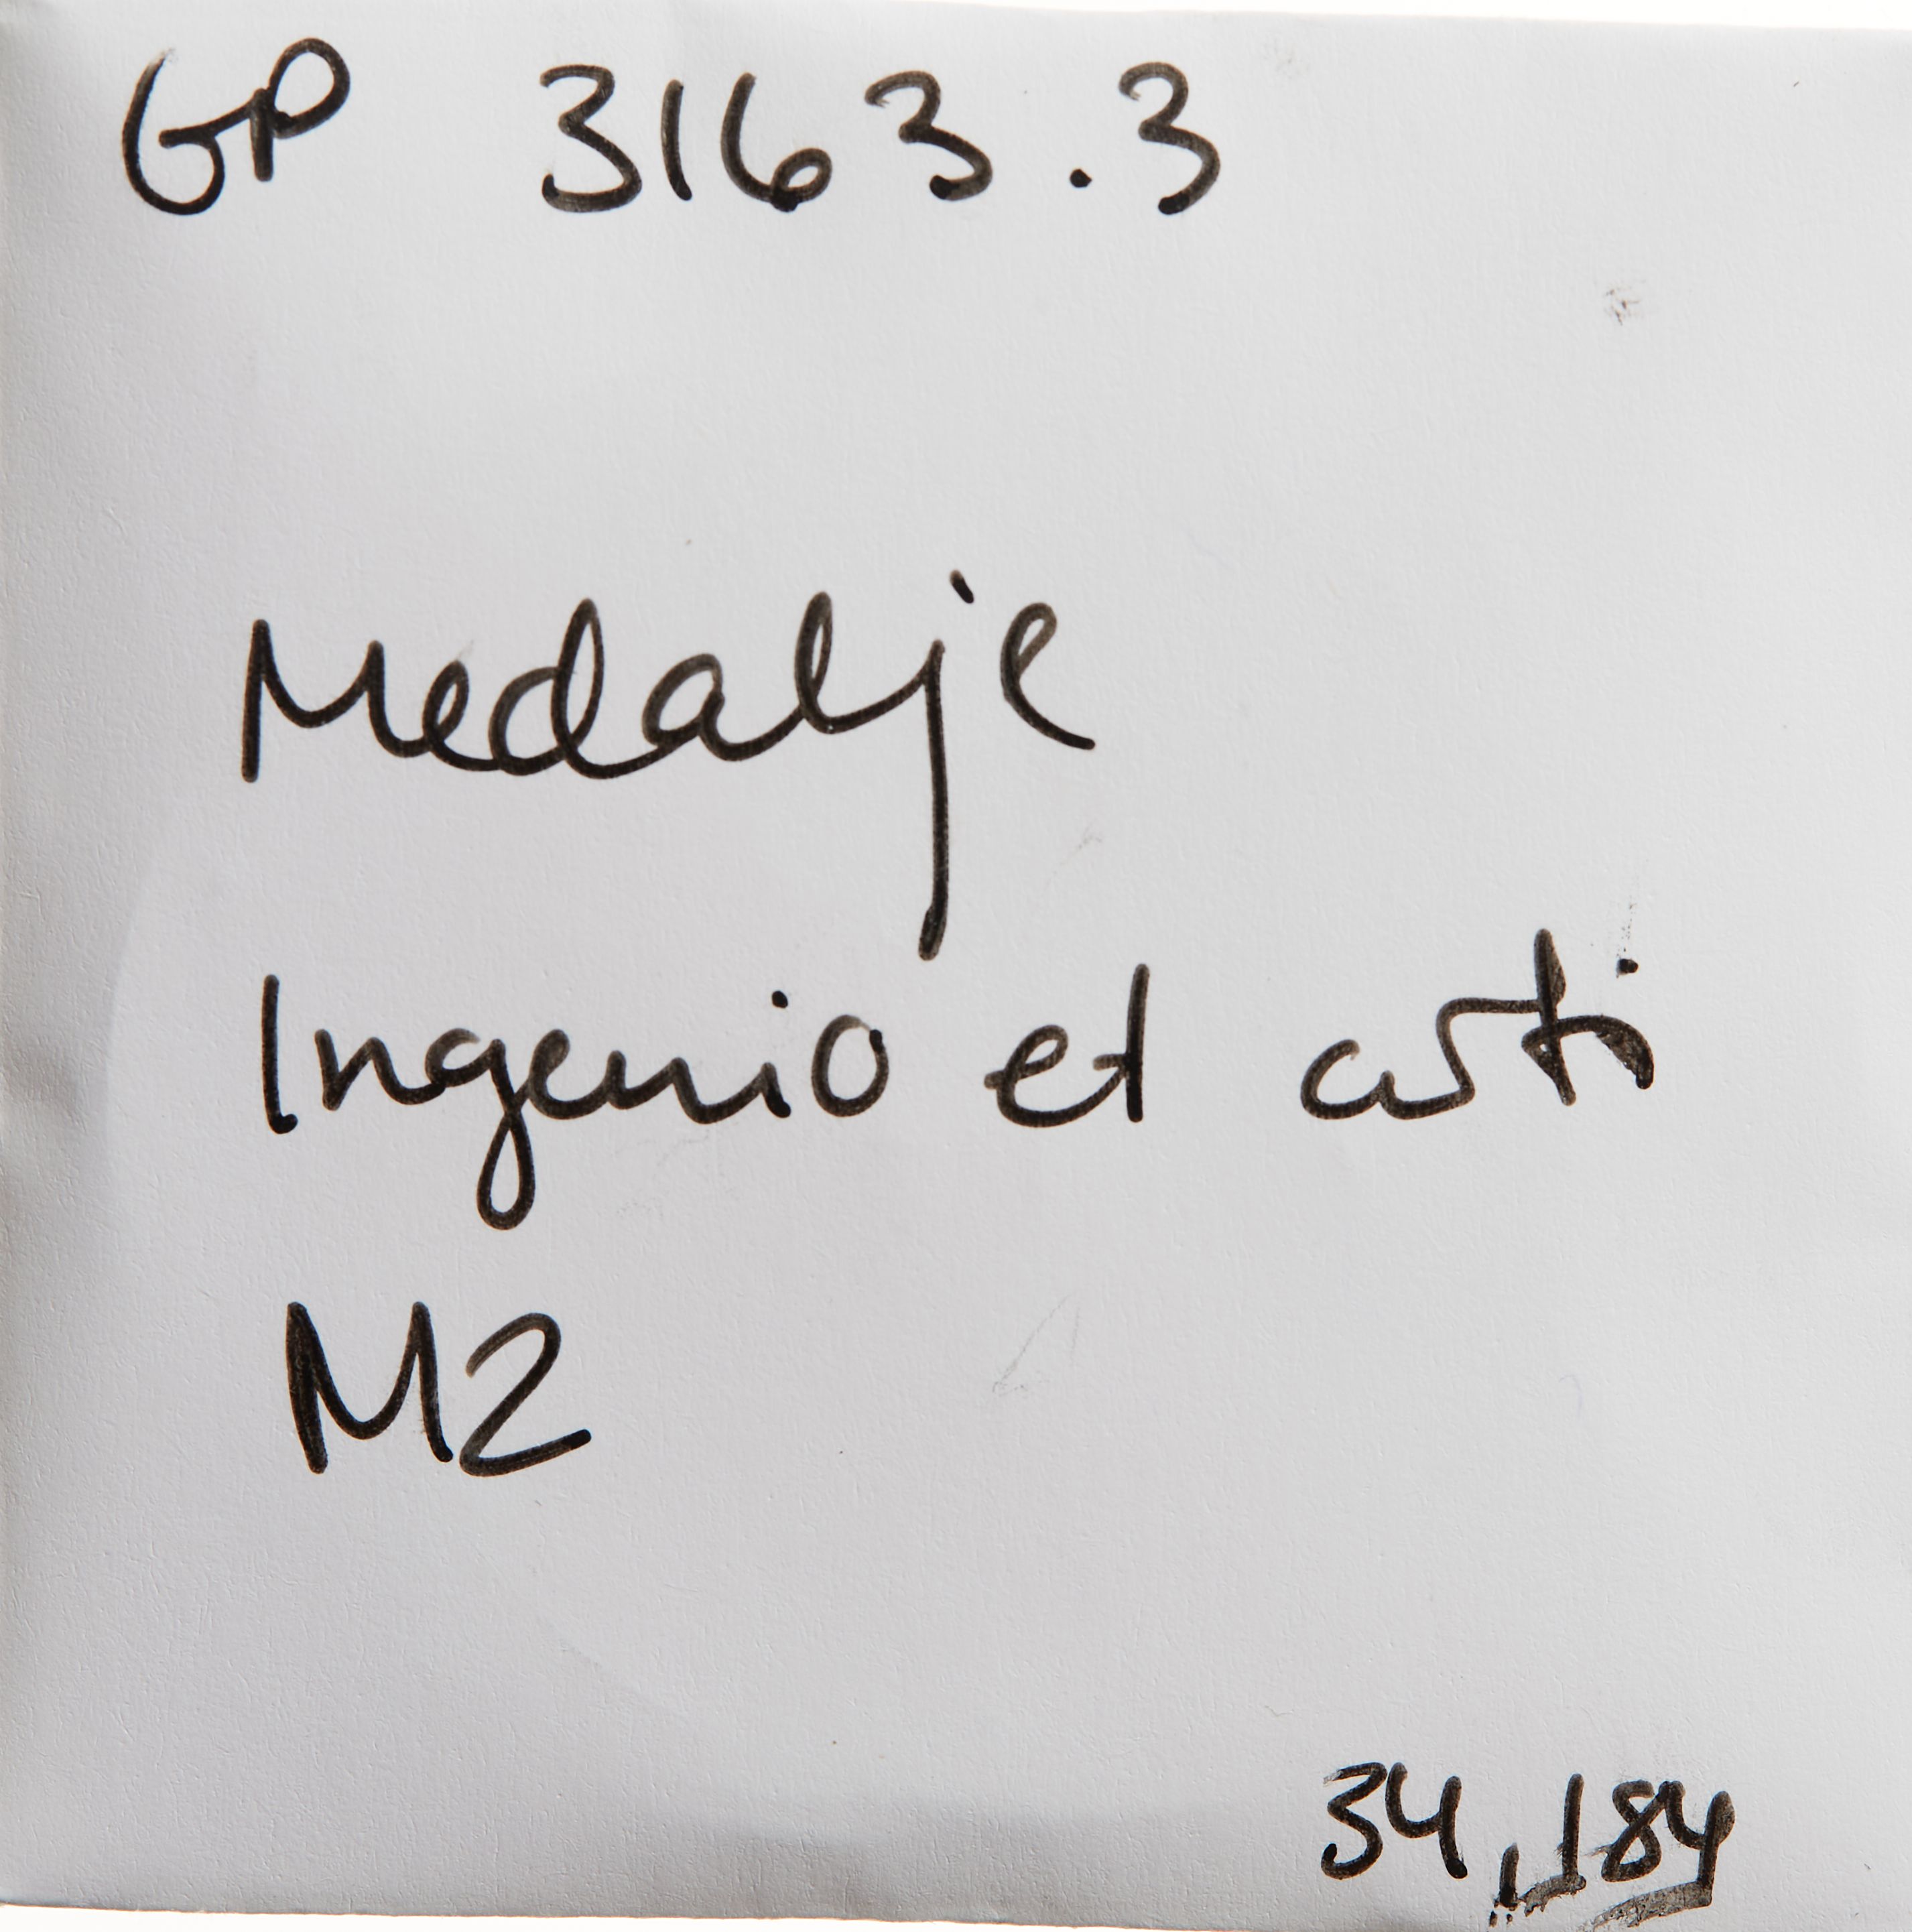 GP 3163.3
Medalje
Ingenio et arti
M2
34,184